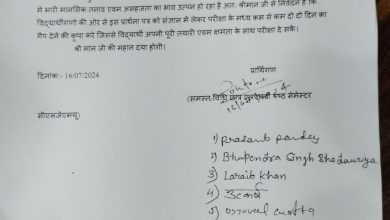 में भारी मानसिक तनाव एवम असहजता का भाव उत्पन हो रहा है अतः श्रीमान जी से निवेदन है कि
विद्यार्थीगणों की ओर से इस प्रार्थना पत्र को संज्ञान में लेकर परीक्षा के मध्य कम से कम दो दो दिन का
गैप देने की कृपा करे जिससे विद्यार्थी अपनी पूरी तैयारी एवम क्षमता के साथ परीक्षा दे सकें।
श्री मान जी की महान दया होगी।
दिनांक:- 16/07/2024
प्रार्थीगण
(समस्त विधि छात्र षष्ठ सेमेस्टर
सीएसजेएमयू)
1) Prashant pandey
2) Bhupendra Singh Bhadauriya
3) Laraib Khan
4) उत्कर्ष
5)